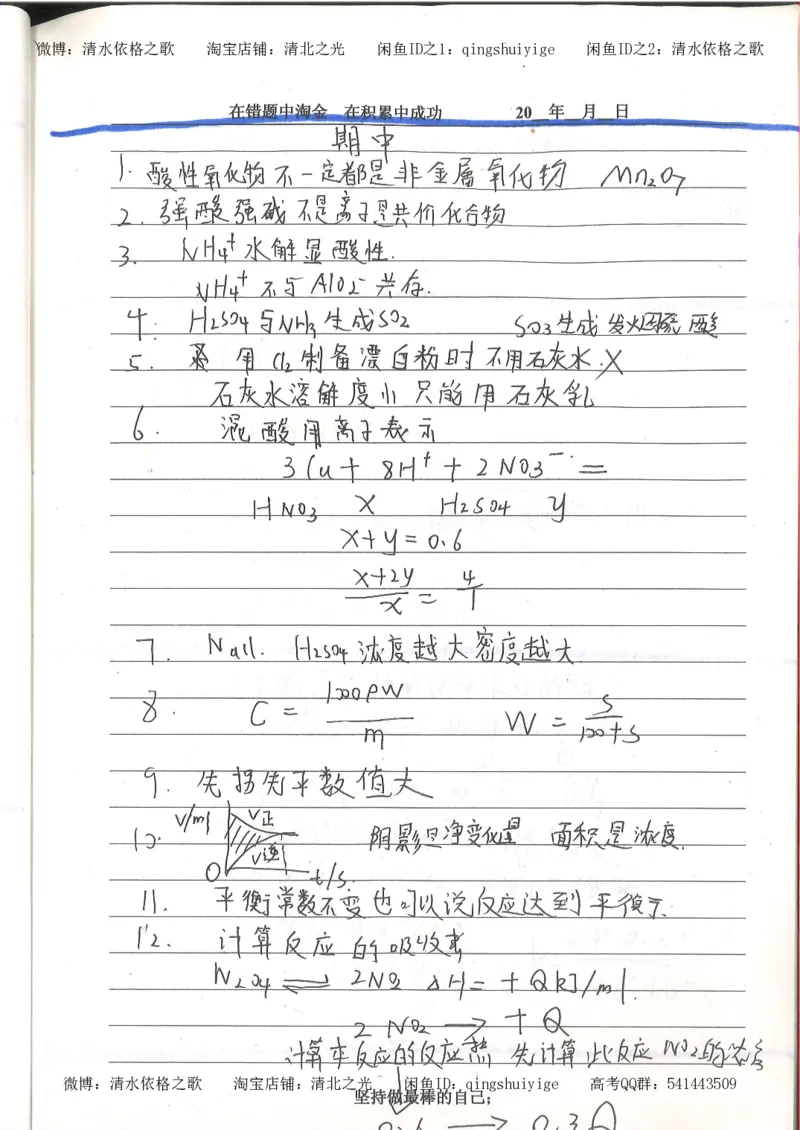 微博：清水依格之歌 淘宝店铺：清北之光 闲鱼ID之1：qingshuiyige 闲鱼ID之2：清水依格之歌
在错题中淘金 在积累中成功 20__年__月__日
期中
1. 酸性氧化物不一定都是非金属氧化物 Mn2O7
2. 强酸强碱不是离子是共价化合物
3. NH4+水解显酸性.
NH4+不与AlO2-共存.
4. H2SO4与NH3生成SO2 SO3生成发烟硫酸
5. 用Cl2制备漂白粉时不用石灰水.X
石灰水溶解度小只能用石灰乳
6. 混酸用离子表示
3Cu + 8H+ + 2NO3- =
HNO3 X H2SO4 y
x+y=0.6
(x+2y)/x = 4/1
7. H2SO4浓度越大密度越大
8. C = 1000ρW/m W = S/(100+S)
9. 先拐先平数值大
10. V/ml V正 阴影是净变化量 面积是浓度.
V逆
O t/s.
11. 平衡常数不变也可以说反应达到平衡
12. 计算反应的吸收热
N2O4 ⇌ 2NO2 ΔH = +QkJ/ml.
2NO2 → +Q
计算本反应的反应热 先计算此反应NO2的
微博：清水依格之歌 淘宝店铺：清北之光 闲鱼ID：qingshuiyige 高考QQ群：541443509
坚持做最棒的自己;
0.6 → 0.3Q